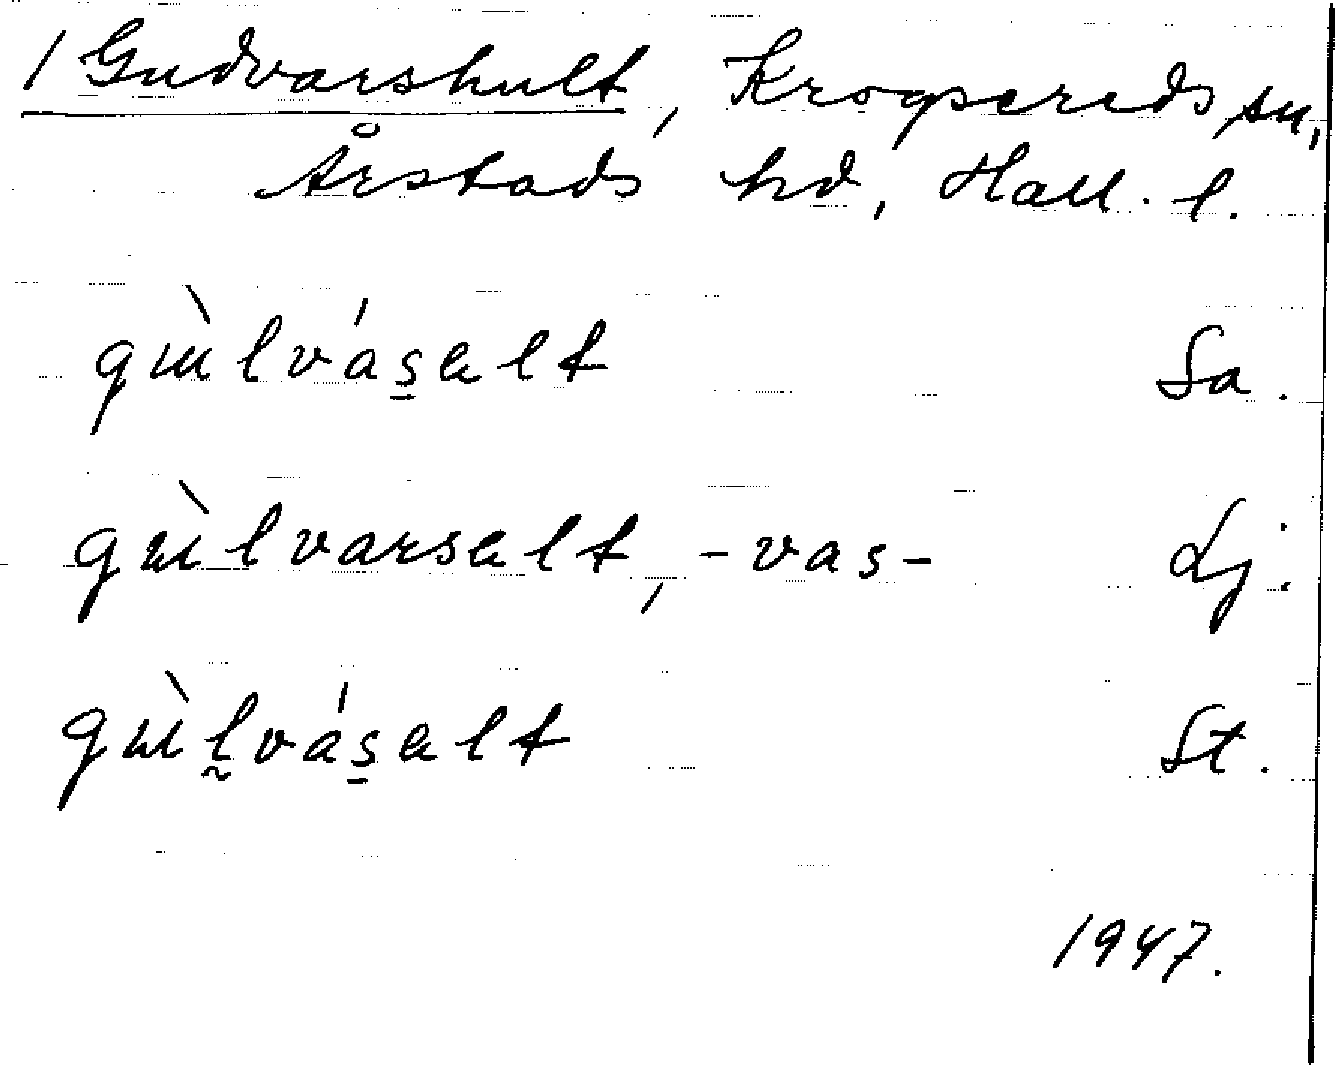 / Gudvarshult, Krogsereds sn,
Årstads hd, Hall. l.
gɯ̀lvás̱alt Sa.
gɯ̀lvarsalt, -vas- Lj.
gɯ̀l̰vás̱alt St.
1947.